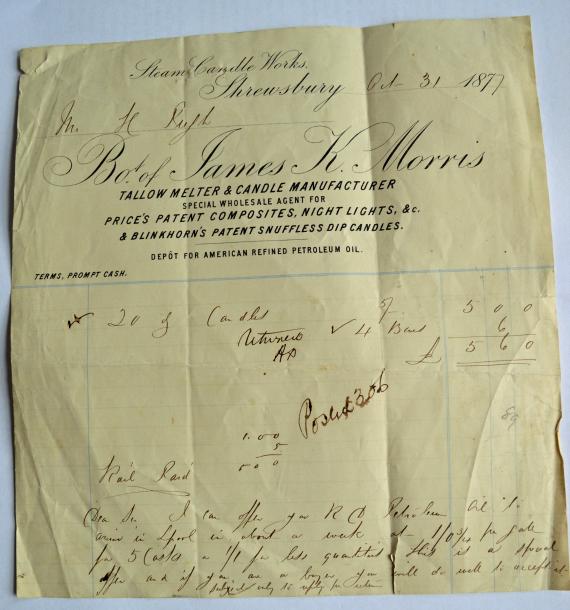 Steam Candle Works,
Shrewsbury Oct 31 1877
Mr H Pugh
Bot. of James K. Morris
TALLOW MELTER & CANDLE MANUFACTURER
SPECIAL WHOLESALE AGENT FOR
PRICE'S PATENT COMPOSITES, NIGHT LIGHTS, &c.
& BLINKHORN'S PATENT SNUFFLESS DIP CANDLES.
DEPÔT FOR AMERICAN REFINED PETROLEUM OIL.
TERMS, PROMPT CASH.
20 Candles 5/ 5 0 0
4 6
£ 5 6 0
1.00
5
5 0 0
Rail Paid
Dear Sir, I can offer you Petroleum Oil to
arrive in Lpool in about a week at 1/0
for 5 Casks 1/1 for less quantities This is a special
offer and if you are a buyer you will do well to accept it
subject only to reply